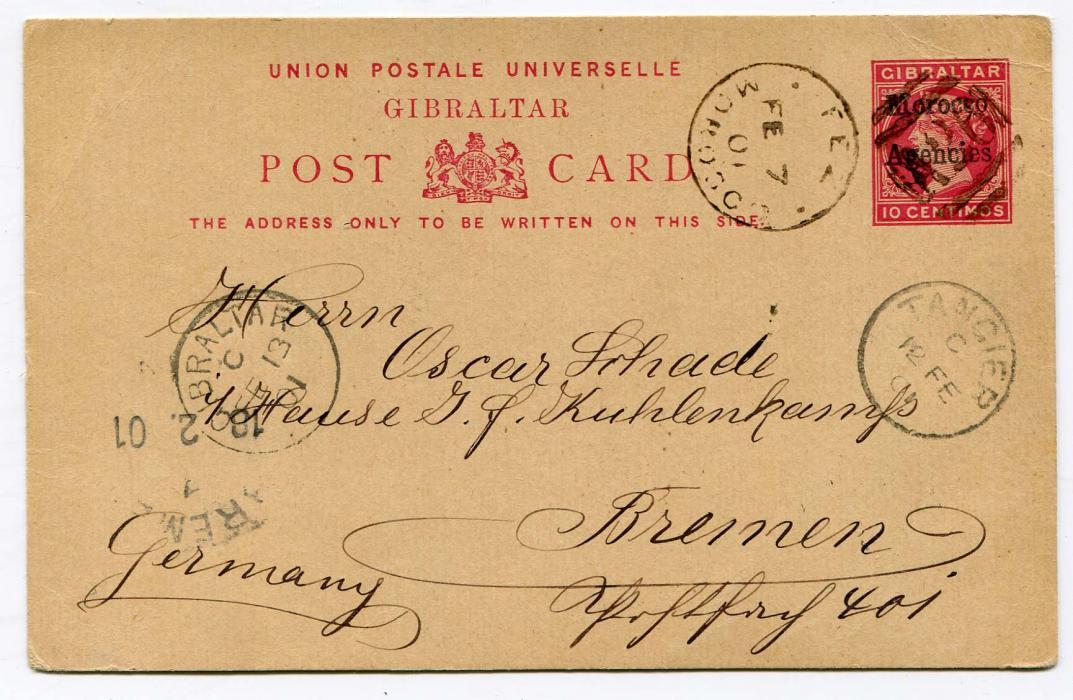 UNION POSTALE UNIVERSELLE
GIBRALTAR
POST CARD
THE ADDRESS ONLY TO BE WRITTEN ON THIS SIDE
GIBRALTAR
Morocco
Agencies
10 CENTIMOS
FEZ
FE 7
01
MOROCCO
Herrn
Oscar Schade
i/Hause G. J. Kuhlenkamp
Bremen
Postfach 401
Germany
TANGIER
C
12 FE
GIBRALTAR
C
FE 13
2. 01